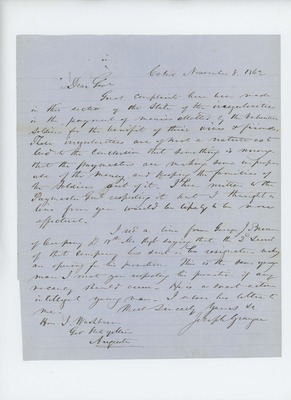 Calais November 8, 1862
Dear Sir
Great complaint has been made
in this section of the State of the irregularities
in the payment of monies allotted by the Volunteer
Soldiers for the benefit of their wives & friends.
These irregularities are of such a nature as to
lead to the conclusion that something is wrong
that the paymasters are making some improper
use of the money and keeping the families of
the soldiers out of it. I have written to the
Paymaster Genl respecting it but I thought a
line from you would be likely to be more
effectual.
I recd a line from George
of Company D Regt saying that the 2 Lieut
of that Company has sent in his resignation making
an opening for his promotion. This is the same young
man I wrote you respecting his promotion if any
vacancy should occur. He is a smart active
intelligent young man. I enclose his letter to
me. Most Sincerely Yours &c
Hon I Washburn Joseph Granger
Gov
Augusta